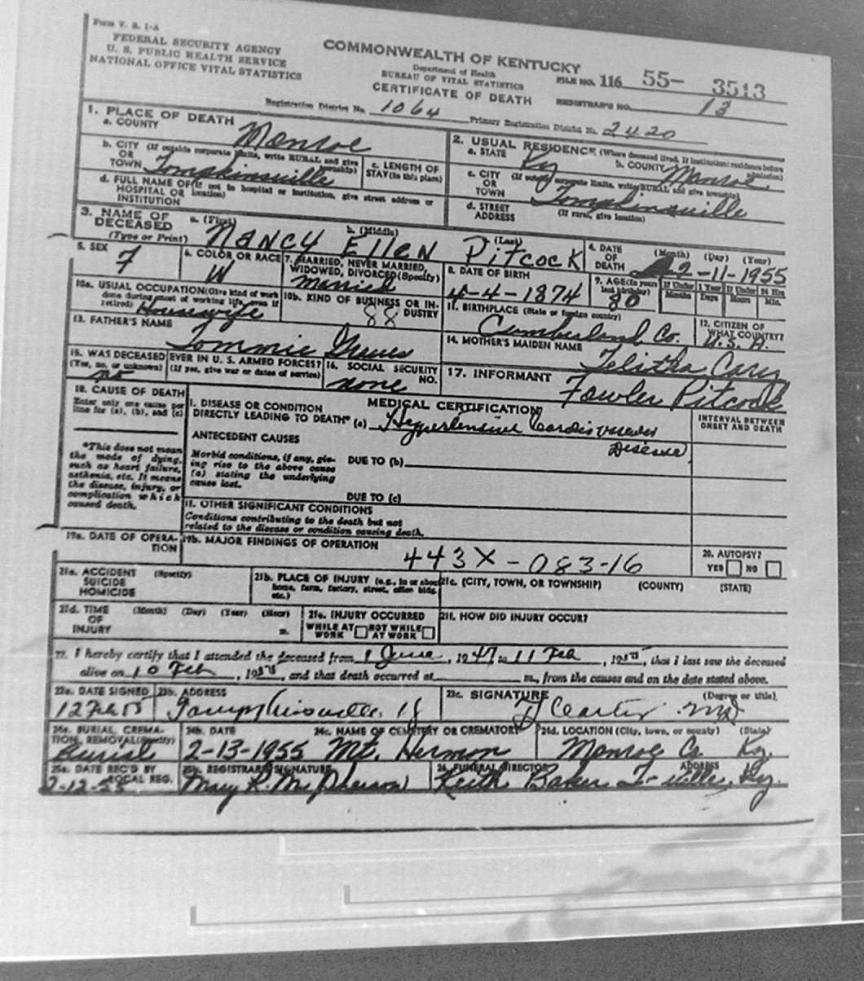 Form V. S. 1-A
FEDERAL SECURITY AGENCY
U. S. PUBLIC HEALTH SERVICE
NATIONAL OFFICE VITAL STATISTICS
COMMONWEALTH OF KENTUCKY
Department of Health
BUREAU OF VITAL STATISTICS
CERTIFICATE OF DEATH
FILE NO. 116 55- 3513
REGISTRAR'S NO. 13
Registration District No. 1064 Primary Registration District No. 2420
1. PLACE OF DEATH
a. COUNTY Monroe
b. CITY (If outside corporate limits, write RURAL and give township)
OR
TOWN Tompkinsville
c. LENGTH OF
STAY (in this place)
d. FULL NAME OF (If not in hospital or institution, give street address or location)
HOSPITAL OR
INSTITUTION
2. USUAL RESIDENCE (Where deceased lived. If institution: residence before admission)
a. STATE Ky
b. COUNTY Monroe
c. CITY (If outside corporate limits, write RURAL and give township)
OR
TOWN Tompkinsville
d. STREET (If rural, give location)
ADDRESS
3. NAME OF DECEASED
(Type or Print)
a. (First) b. (Middle) (Last)
NANCY ELLEN PITCOCK
4. DATE OF DEATH (Month) (Day) (Year)
2-11-1955
5. SEX F
6. COLOR OR RACE W
7. MARRIED, NEVER MARRIED,
WIDOWED, DIVORCED (Specify)
Married
8. DATE OF BIRTH
4-4-1874
9. AGE (In years last birthday) 80
If Under 1 Year Months Days
If Under 24 Hrs. Hours Min.
10a. USUAL OCCUPATION (Give kind of work done during most of working life, even if retired)
Housewife
10b. KIND OF BUSINESS OR INDUSTRY
88
11. BIRTHPLACE (State or foreign country)
Cumberland Co.
12. CITIZEN OF WHAT COUNTRY?
U.S.A.
13. FATHER'S NAME
Tommie Graves
14. MOTHER'S MAIDEN NAME
Telitha Cary
15. WAS DECEASED EVER IN U. S. ARMED FORCES?
(Yes, no, or unknown) (If yes, give war or dates of service)
no
16. SOCIAL SECURITY NO.
none
17. INFORMANT
Fowler Pitcock
18. CAUSE OF DEATH
Enter only one cause per
line for (a), (b), and (c)
*This does not mean
the mode of dying,
such as heart failure,
asthenia, etc. It means
the disease, injury, or
complication which
caused death.
MEDICAL CERTIFICATION
I. DISEASE OR CONDITION
DIRECTLY LEADING TO DEATH* (a) Hypertensive
Disease
INTERVAL BETWEEN
ONSET AND DEATH
ANTECEDENT CAUSES
Morbid conditions, if any, giving rise to the above cause
(a) stating the underlying
cause last.
DUE TO (b)
DUE TO (c)
II. OTHER SIGNIFICANT CONDITIONS
Conditions contributing to the death but not
related to the disease or condition causing death.
19a. DATE OF OPERATION
19b. MAJOR FINDINGS OF OPERATION
443X-083-16
20. AUTOPSY?
YES NO
21a. ACCIDENT (Specify)
SUICIDE
HOMICIDE
21b. PLACE OF INJURY (e.g., in or about home, farm, factory, street, office bldg. etc.)
21c. (CITY, TOWN, OR TOWNSHIP) (COUNTY) (STATE)
21d. TIME (Month) (Day) (Year) (Hour)
OF
INJURY m.
21e. INJURY OCCURRED
WHILE AT WORK NOT WHILE AT WORK
21f. HOW DID INJURY OCCUR?
22. I hereby certify that I attended the deceased from 1 June, 1947 to 11 Feb, 1955, that I last saw the deceased
alive on 10 Feb, 1955, and that death occurred at m., from the causes and on the date stated above.
23a. DATE SIGNED
12 Feb 55
23b. ADDRESS
Tompkinsville, Ky
23c. SIGNATURE (Degree or title)
Carter MD
24a. BURIAL, CREMATION, REMOVAL (Specify)
Burial
24b. DATE
2-13-1955
24c. NAME OF CEMETERY OR CREMATORY
Mt. Hermon
24d. LOCATION (City, town, or county) (State)
Monroe Co Ky.
25a. DATE REC'D BY LOCAL REG.
2-12-55
25b. REGISTRAR'S SIGNATURE
Mary R. McPherson
26. FUNERAL DIRECTOR ADDRESS
Keith Baker T-ville, Ky.